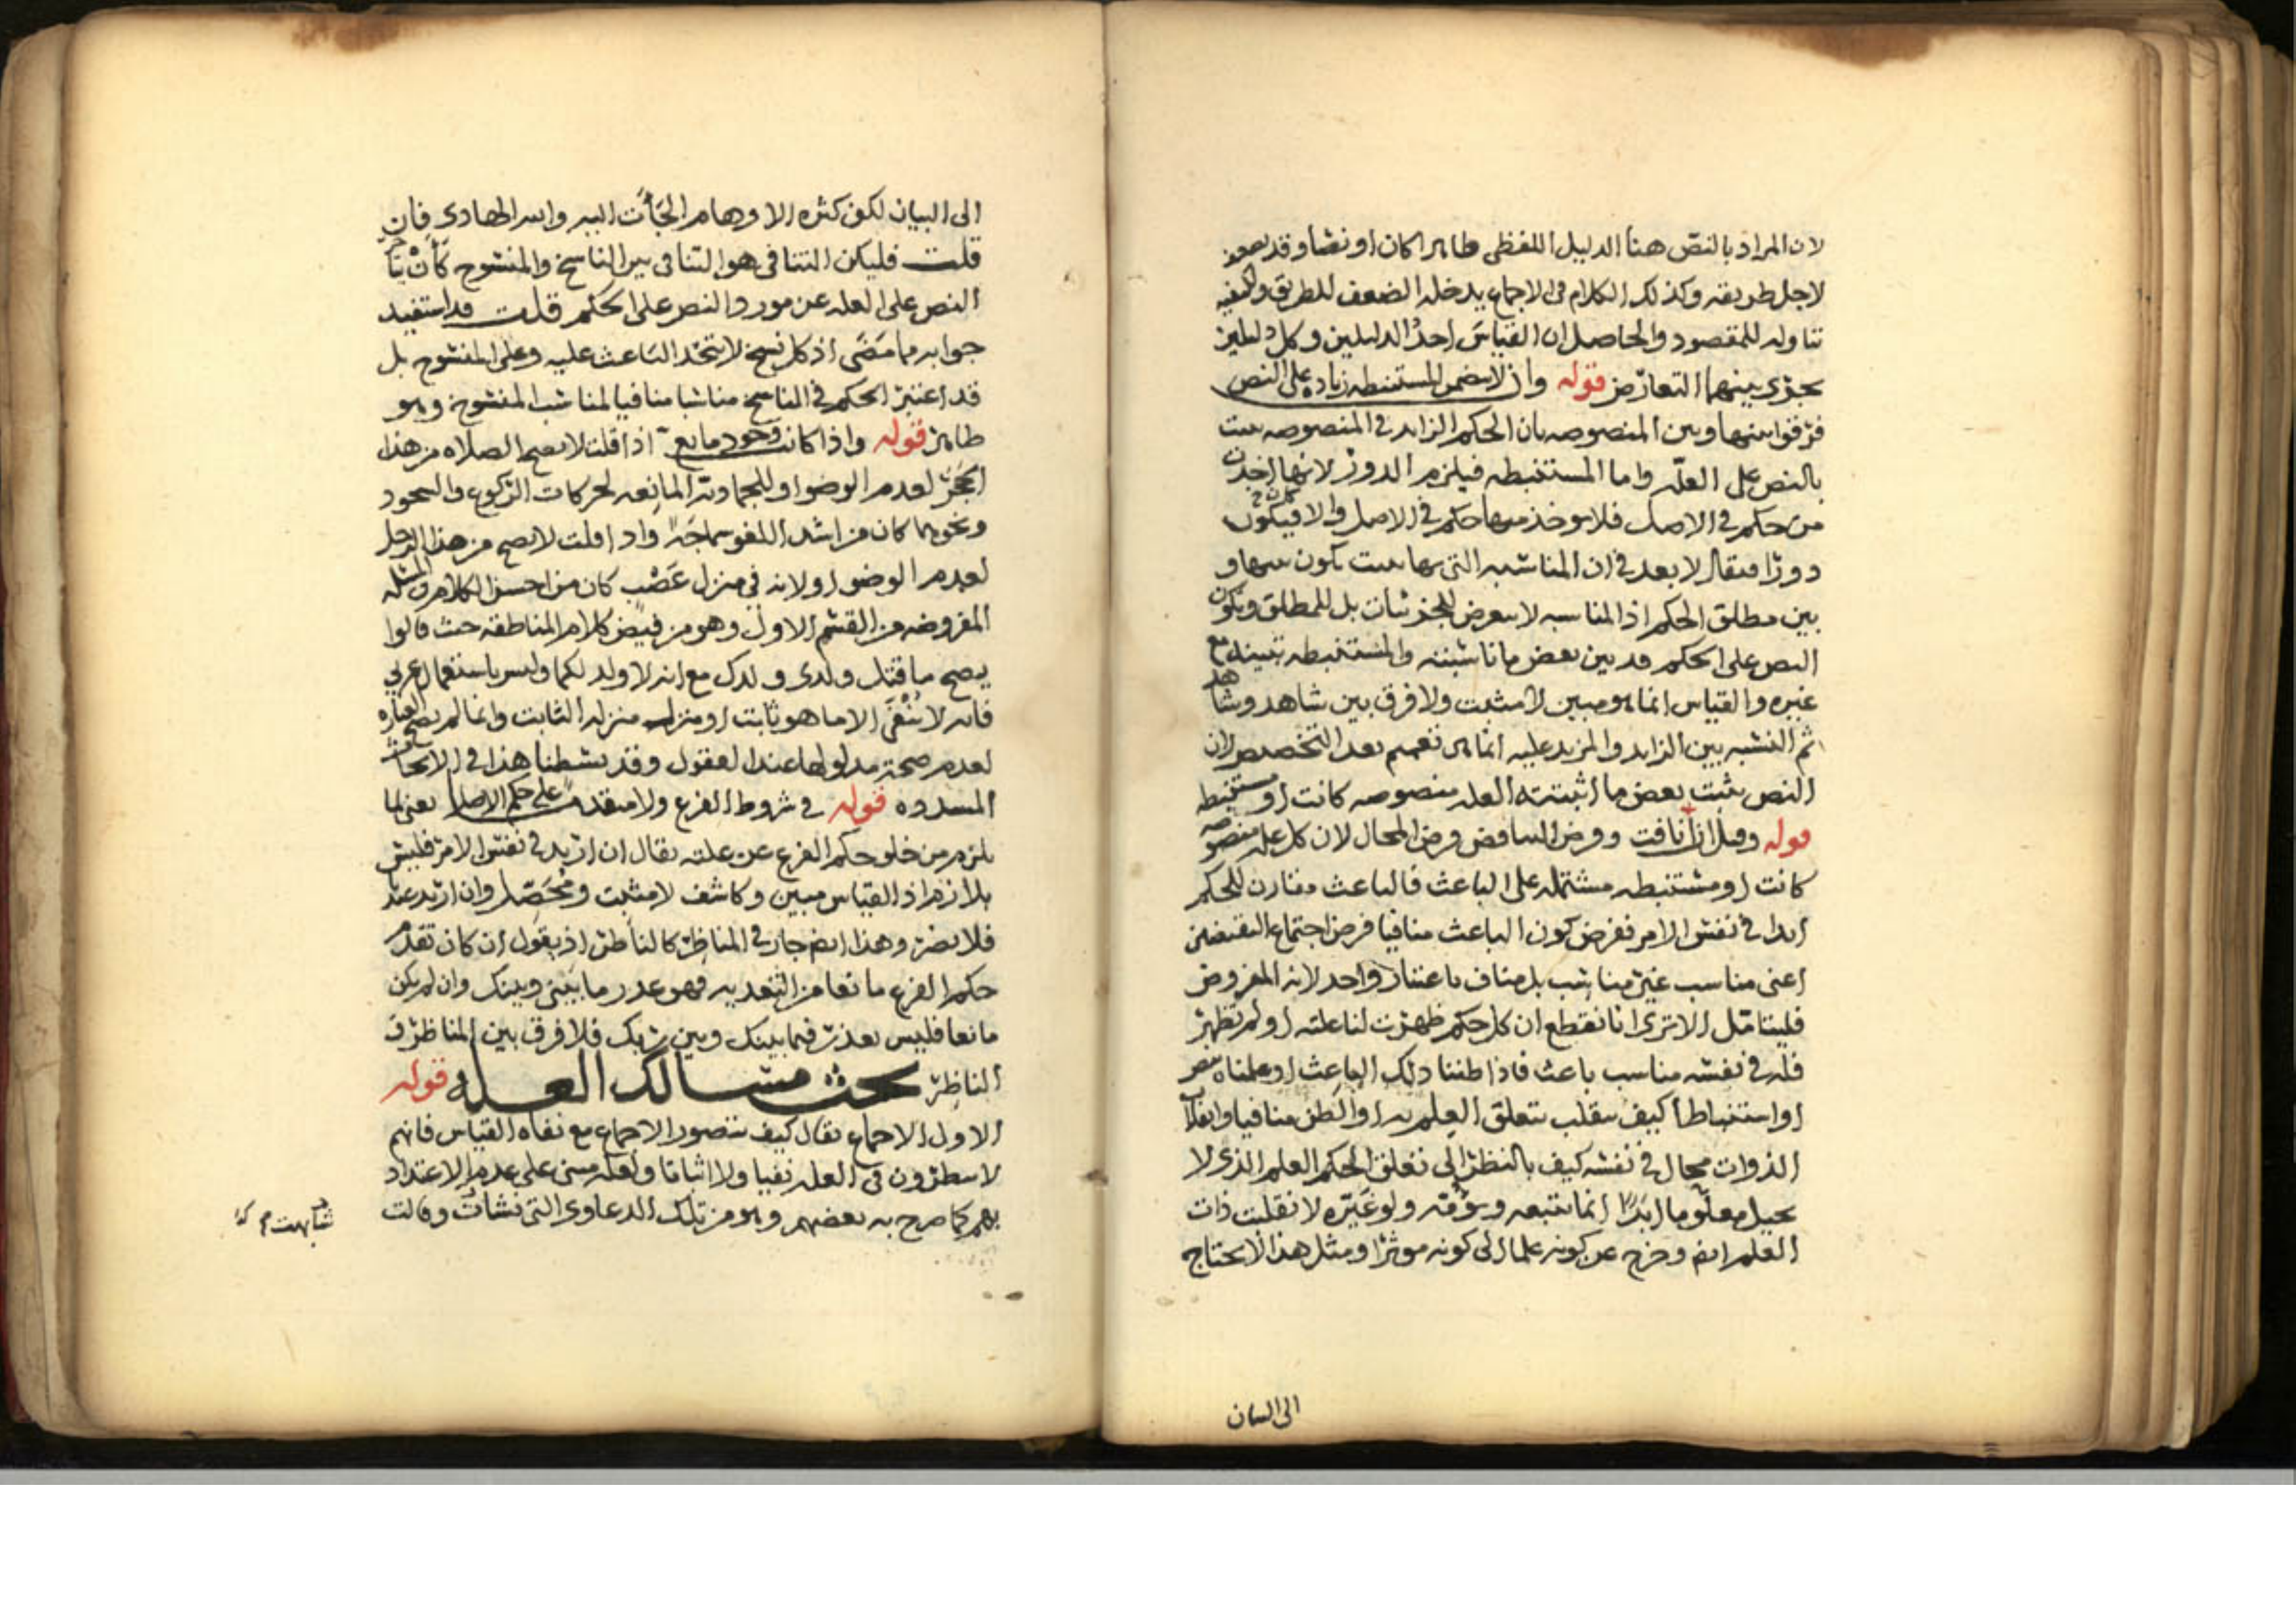 لان المراد بالنص هنا الدليل اللفظي ظاهرا كان او نصا وقد يضعف
لاجل طريقه وكذلك الكلام في الاجماع يدخله الضعف للطريق ولكيفيه
تناوله للمقصود والحاصل ان القياس احد الدليلين وكل دليلين
يجرى بينهما التعارض قوله وان لا تتضمن المستنبطه زياده على النص
فرقوا بينها وبين المنصوصه بان الحكم الزايد في المنصوصه يثبت
بالنص على العله واما المستنبطه فيلزم الدور لانها اخذت
من حكم في الاصل فلا يوخذ منها حكم في الاصل والا فيكون
دورا فيقال لا بعد في ان المناسبه التي بها يثبت تكون بينها و
بين مطلق الحكم اذ المناسبه لا تتعرض للجزئيات بل للمطلق ويكون
النص على الحكم قد بين بعض ما ناسبته والمستنبطه تبينه مع
غيره والقياس انما هو مبين لا مثبت ولا فرق بين شاهد وشاهد
ثم النسبه بين الزايد والمزيد عليه انما هى تعميم بعد التخصيص لان
النص يثبت بعض ما اثبتته العله منصوصه كانت او مستنبطه
قوله وقيل ان نافت وفرض التناقض فرض المحال لان كل عله منصوصه
كانت او مستنبطه مشتمله على الباعث فالباعث مقارن للحكم
ابدا في نفس الامر ففرض كون الباعث منافيا فرض اجتماع النقيضين
اعنى مناسب غير مناسب بل مناف باعتبار واحد لانه المفروض
فليتامل الا ترى انا نقطع ان كل حكم ظهرت لنا علته او لم تظهر
فله في نفسه مناسب باعث فاذا ظننا ذلك الباعث او علمناه بنص
او استنباط كيف ينقلب بتعلق العلم به او الظن منافيا وانقلاب
الذوات محال في نفسه كيف بالنظر الى تعلق الحكم العلم الذي لا
يحيل معلوما ابدا انما يتبعه ولو غيره لانقلبت ذات
العلم ايضا وخرج عن كونه علما الى كونه موثرا ومثل هذا لا يحتاج
الى البيان
الى البيان لكن كثره الاوهام الجأت اليه والله الهادى فان
قلت فليكن التنافي هو التنافي بين الناسخ والمنسوخ كأن يتأخر
النص على العله عن مورد النص على الحكم قلت قد استفيد
جوابه مما مضى اذ كل نسخ لا يتحد الباعث عليه وعلى المنسوخ بل
قد اعتبر الحكم في الناسخ مناسبا منافيا لمناسب المنسوخ وهو
ظاهر قوله واذا كانت وجود مانع اذا قلت لا تصح الصلاه من هذا
الحجر لعدم الوضو او للجماديه المانعه لحركات الركوع والسجود
ونحوهما كان من اشد اللغو سماجه واذا قلت لا تصح من هذا الرجل
لعدم الوضو او لانه في منزل غصب كان من احسن الكلام والمسئله
المفروضه من القسم الاول وهو من فيض كلام المناطقه حيث قالوا
يصح ما قتل ولدى ولدك مع انه لا ولد لكما وليس باستعمال عربي
فانه لا ينفى الا ما هو ثابت او منزل منزله الثابت وانما لم تصح العباره
لعدم صحه مدلولها عند العقول وقد بسطنا هذا في الابحاث
المسدده قوله في شروط الفرع ولا متقدما على حكم الاصل يعنى لما
يلزم من خلو حكم الفرع عن علته يقال ان اريد في نفس الامر فليس
بلازم اذ القياس مبين وكاشف لا مثبت ومحصل وان اريد عندنا
فلا يضر وهذا ايضا جار في المناظر كالناظر اذ يقول ان كان تقدم
حكم الفرع مانعا من التعديه فهو عذر ما بينى وبينك وان لم يكن
مانعا فليس بعذر فيما بينك وبين ربك فلا فرق بين المناظر و
الناظر بحث مسالك العله قوله
الاول الاجماع يقال كيف يتصور الاجماع مع نفاه القياس فانهم
لا ينظرون في العله نفيا ولا اثباتا ولعله مبنى على عدم الاعتداد
بهم كما صرح به بعضهم وهو من تلك الدعاوى التي نشأت وقالت